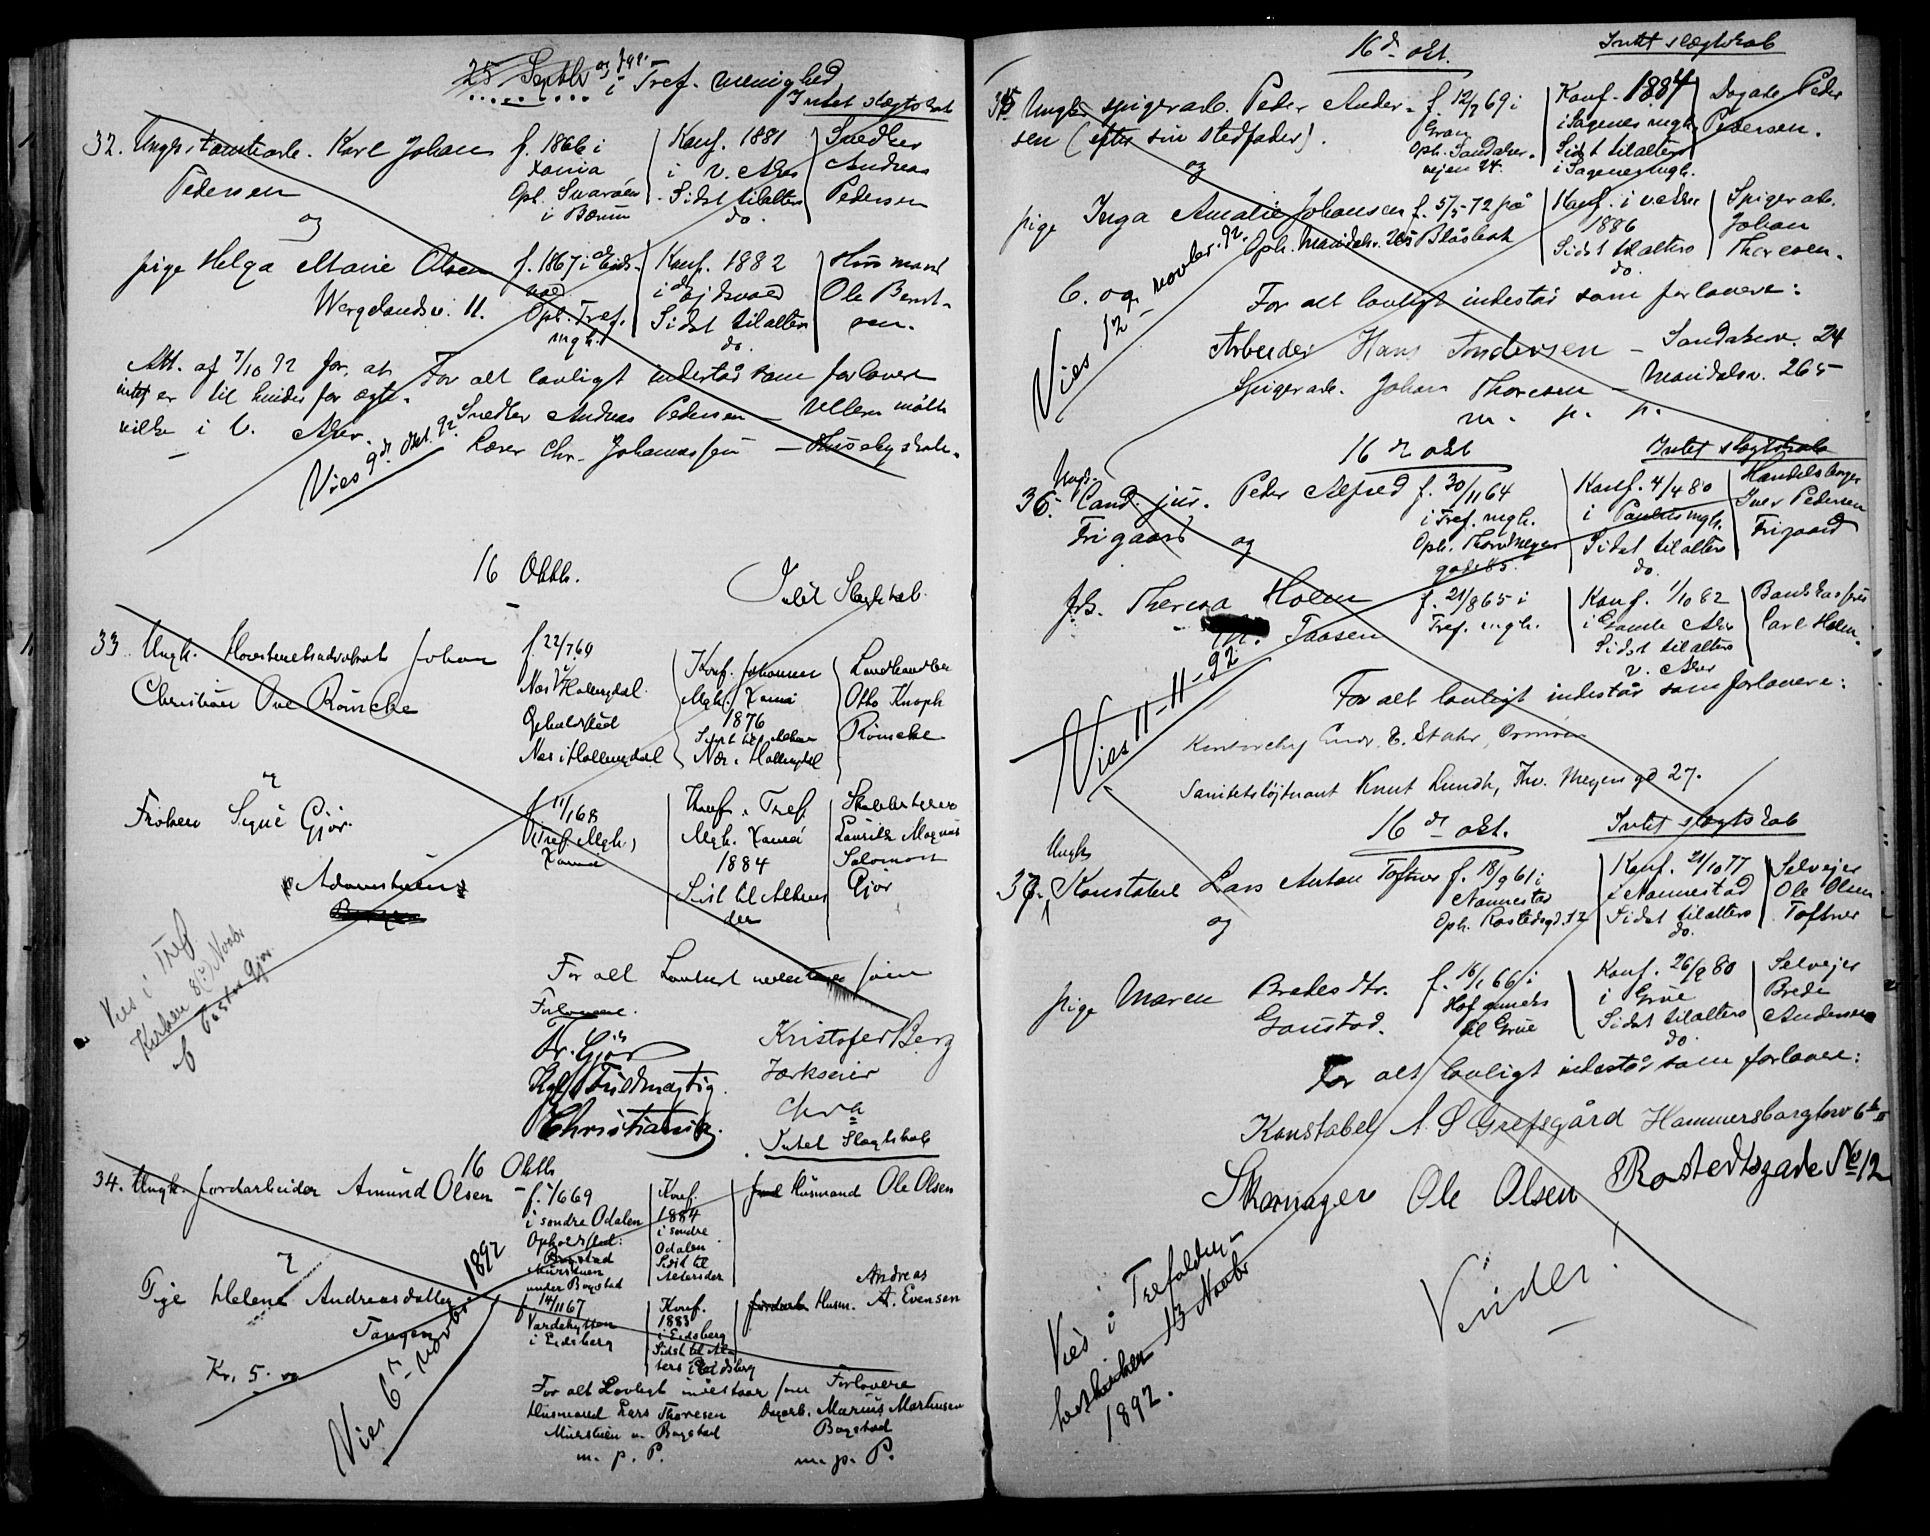 25 Septbr og flg. i Tref. menighed
Intet slægtskab
32. Ungk. tomtearb. Karl Johan
Pedersen
f. 1866 i
Xania
Oph. Snarøen
i Bærum
Konf. 1881
i V. Aker
Sidst tilalters
do.
Snedker
Andreas
Pedersen
og
pige Helga Marie Olsen
Wergelandsv. 11.
f. 1867 i Eids-
vold
Oph. Tref.
mgh.
Konf. 1882
i Ejdsvold
Sidst tilalters
do.
Husmand
Ole Bernt-
sen.
Att. af 7/10 92 for, at
intet er til hinder for ægte-
vilke i V. Aker.
For alt lovligt indestår som forlovere
Snedker Andreas Pedersen – Ullern mølle
Lærer Chr. Johannessen – Husebyskole.
Vies 9de Okt. 92.
16 Oktb.
Intet Slægtskab.
33. Ungk. Høiesteretsadvokat Johan
Christian Ove Römcke
f 22/7 69
Nes i Hallingdal.
Opholdsted
Nes i Hallingdal
Konf. Johannes
Mgh. Xania
1876
Sidst til Alters
Nes i Hallingdal
Landhandler
Otto Knoph
Römcke
&
Frøken Signe Gjør.
Adamstuen
f 11/1 68
i Tref. Mgh.,
Xania
Konf. i Tref.
Mgh. Xania
1884
Sidst til Alters
der
Skolebestyrer
Laurits Magnus
Salomon
Gjør
Vies i Tref
Kirken 8(?) Novbr
af Pastor Gjør
For alt Lovligt indestaar som
Forlovere.
Fr. Gjør
Kgl. Fuldmægtig.
Christiania.
Kristofer Berg
Værkseier
Chra
Intet Slægtskab
16 Oktb
34. Ungk. Jordarbeider Amund Olsen
f. 1/6 69
i søndre Odalen
Opholdsted:
Bogstad
Murstuen
under Bogstad
Konf.
1884
i søndre
Odalen
Sidst til
Alters der
Husmand Ole Olsen
&
Pige Helene Andreasdatter
Tangen
14/11 67
Vardehytten
i Eidsberg
Konf.
1883
i Eidsberg
Sidst til Al-
ters i Eidsberg
Andreas
Husm. A. Evensen
Kr. 5.
Vies 6te Novbr. 1892
For alt Lovligt indestaar som Forlovere
Husmand Lars Thoresen
Murstuen u. Bogstad
m. p. P.
Dagarb. Marius Martinsen
Bogstad
m. p. P.
16de okt.
Intet slægtskab
35. Ungk. spigerarb. Peder Ander-
sen (efter sin stedfader).
f. 12/9 69 i
Gran
Oph. Sandaker-
vejen 24.
Konf. 1884
i Sagenes mgh.
Sidst tilalters
i Sagenes mgh.
Dagarb. Peder
Pedersen.
og
pige Inga Amalie Johansen
f. 5/5 72 på
Blåsbak
Oph. Maridalsv. 265
Konf. i v. Aker
1886
Sidst tilalters
do.
Spigerarb.
Johan
Thoresen.
For alt lovligt indestår som forlovere:
Arbeider Hans Andersen – Sandakerv. 24
Spigerarb. Johan Thoresen – Maridalsv. 265
m. p. p.
Vies 12te novbr. 92.
16de okt
Intet slægtskab
36. Ungk. Cand. jur. Peder Alfred
Frigaard
f. 30/11 64
i Tref. mgh.
Oph. Thorv. Meyers
gade 85.
Konf. 4/4 80
i Paulus mgh.
Sidst tilalters
do.
Handelsborger
Iver Pedersen
Frigaard
og
frk. Theresa Holm
Taasen
f. 21/8 65 i
Tref. mgh.
Konf. 1/10 82
i Gamle Aker
Sidst tilalters
v. Aker
Bankkasserer
Carl Holm.
For alt lovligt indestår som forlovere:
Kontorchef Endr. E. Stahr, Ormøen
Sanitetsløjtnant Knut Lundh, Thv. Meyers gd 27.
Vies 11-11-92
16de okt.
Intet slægtskab
37. Ungk. Konstabel Lars Anton Toftner
f. 18/9 61 i
Nannestad
Oph. Rostedsgd. 12
Konf. 21/10 77
i Nannestad
Sidst tilalters
do.
Selvejer
Ole Olsen
Toftner
og
pige Maren Bredesdtr.
Gaustad.
f. 16/1 66 i
Hof anneks
til Grue
Konf. 26/9 80
i Grue
Sidst tilalters
do
Selvejer
Brede
Andersen
For alt lovligt indestår som forlovere:
Konstabel A. S. Grefsgård Hammersborgtorv 6b II
Skomager Ole Olsen Rostedtsgade No 12
Vies i Trefoldig-
hedskirken 13 Novbr
1892.
Vender!